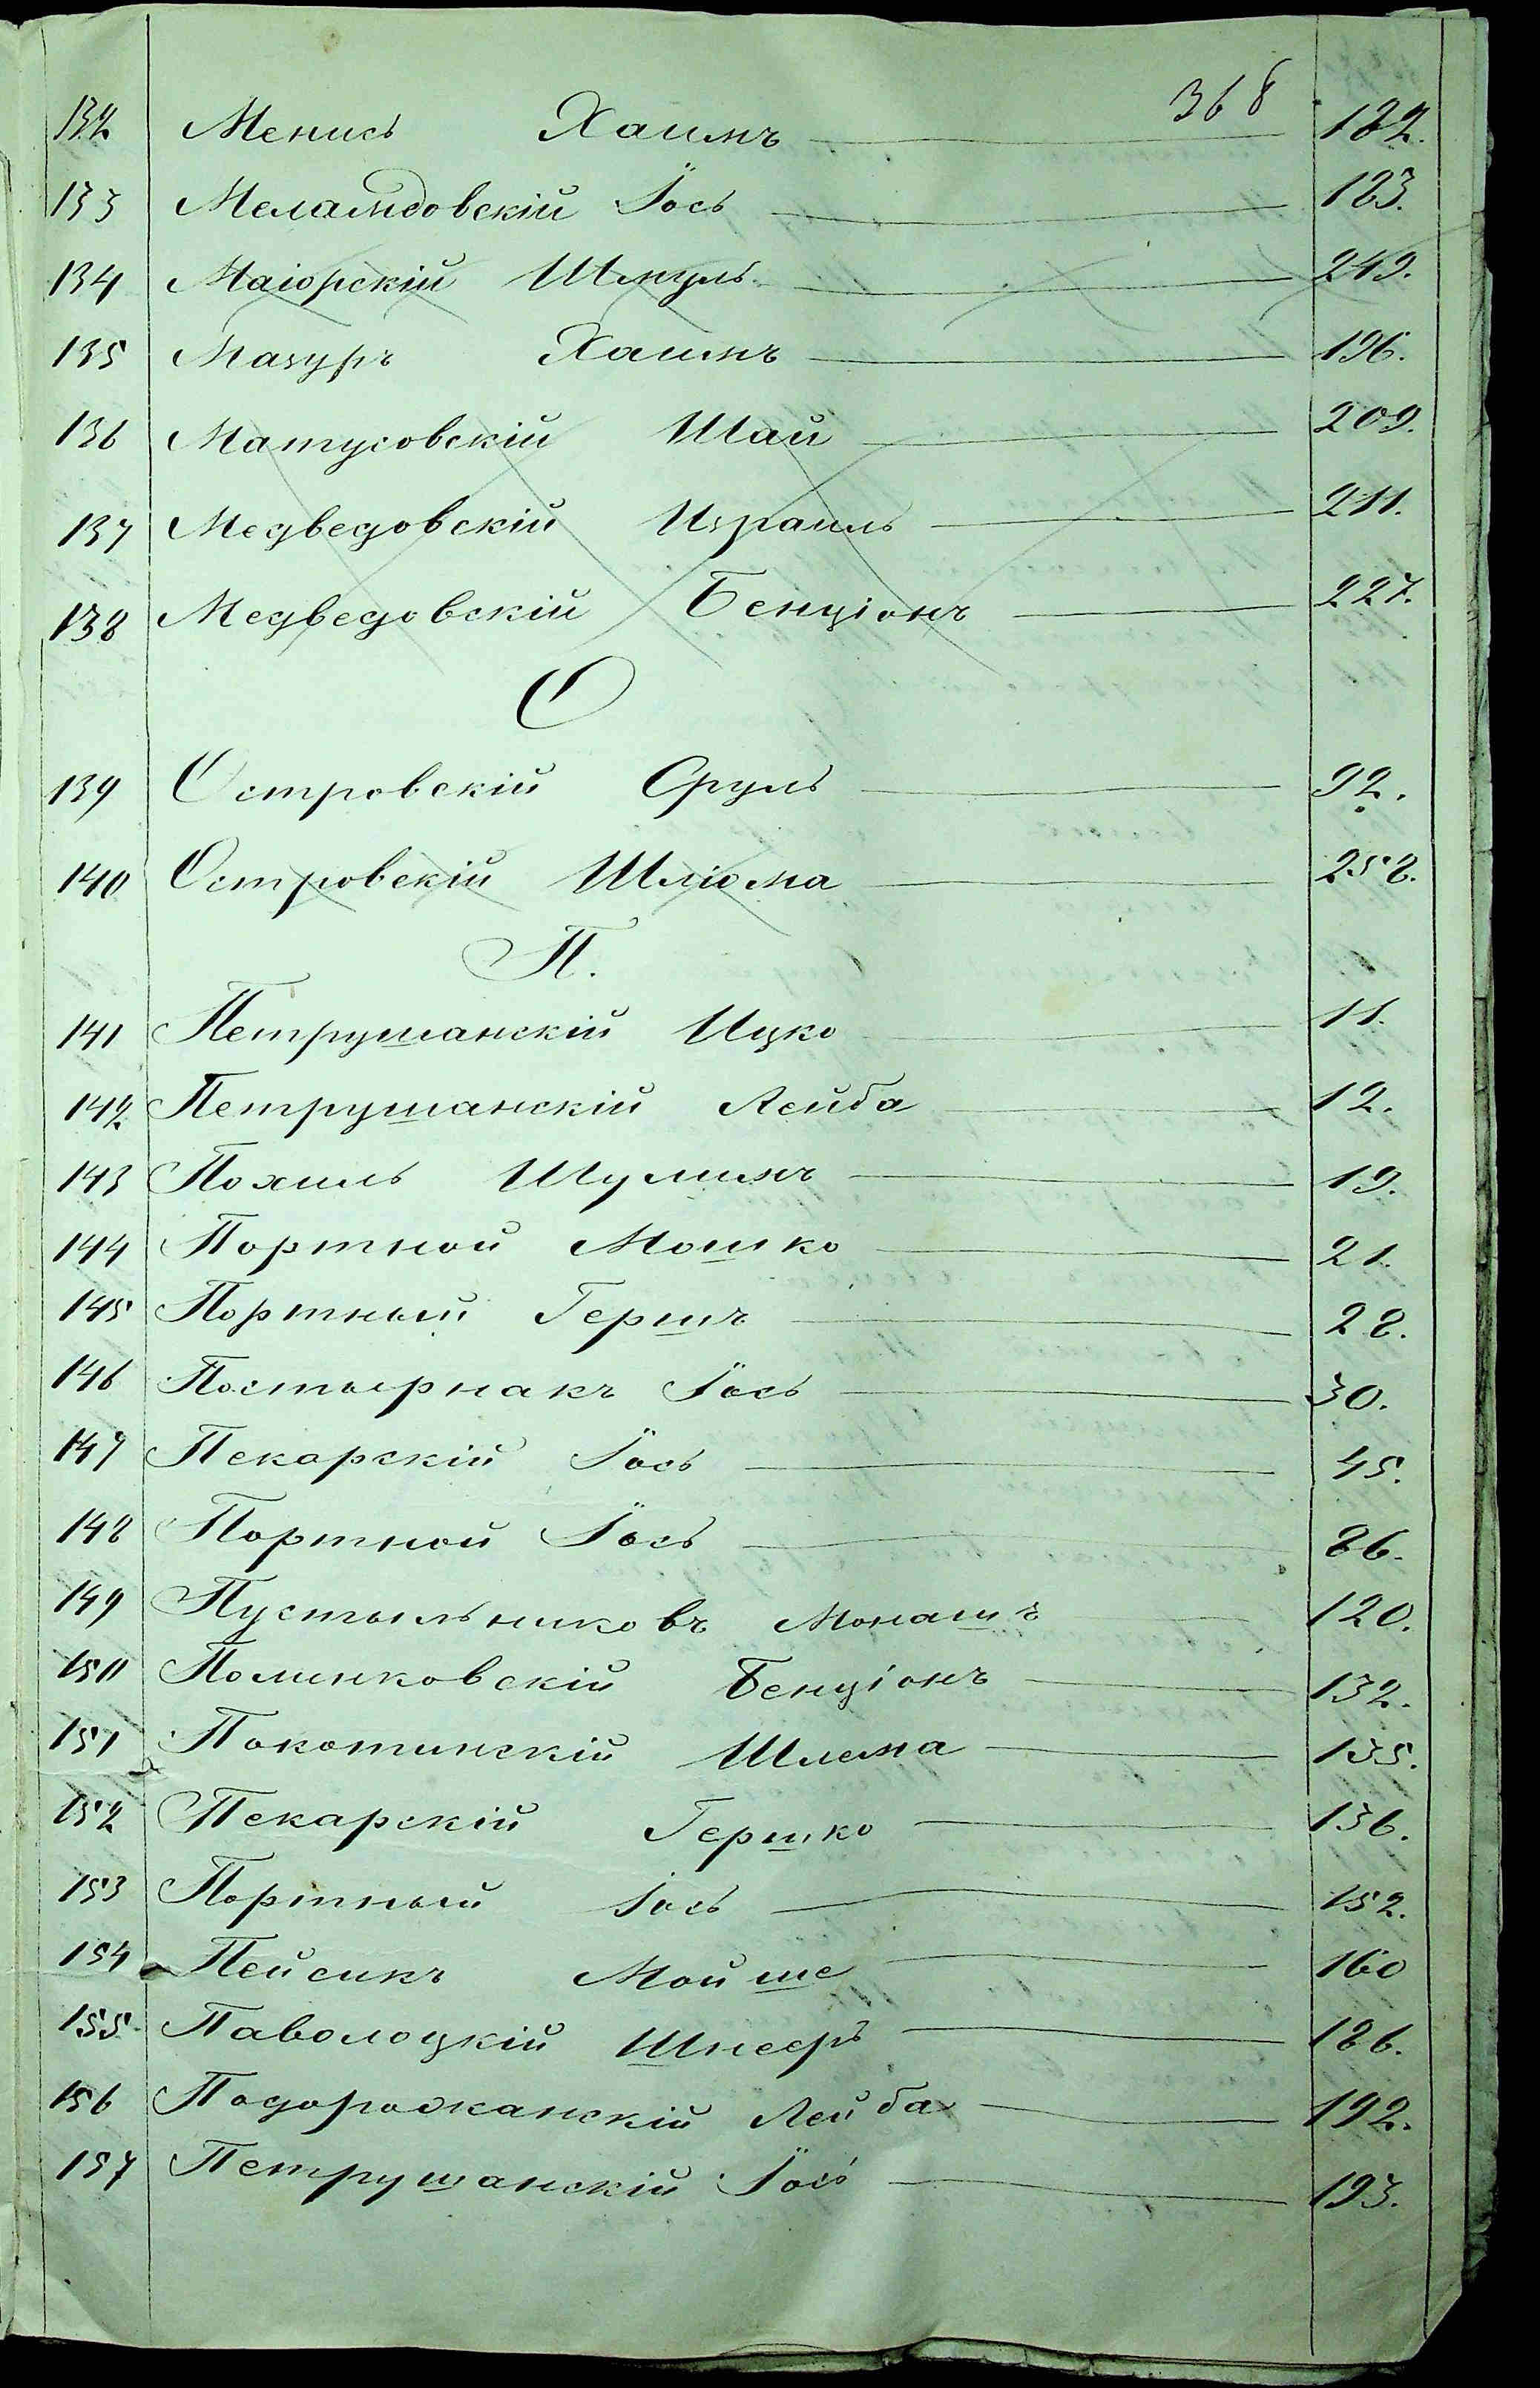 368
132 Менись Хаимъ 182.
133 Меламедовскій Іось 183.
134 Маіорскій Шмуль 249.
135 Мазуръ Хаимъ 196.
136 Матусовскій Шая 209.
137 Медведовскій Израиль 211.
138 Медведовскій Бенціонъ 227.
О
139 Островскій Сруль 92.
140 Островскій Шліома 258.
П.
141 Петрушанскій Ицко 11.
142 Петрушанскій Лейба 12.
143 Похиль Шулимъ 19.
144 Портной Мошко 21.
145 Портный Гершъ 28.
146 Постырнакъ Іось 30.
147 Пекарскій Іось 45.
148 Портной Іось 86.
149 Пустыльниковъ Монашъ 120.
150 Полинковскій Бенціонъ 132.
151 Покотинскій Шлема 135.
152 Пекарскій Гершко 136.
153 Портный Іось 152.
154 Пейсикъ Мойше 160
155 Паволоцкій Шнееръ 186.
156 Подорожанскій Лейба 192.
157 Петрушанскій Іось 193.